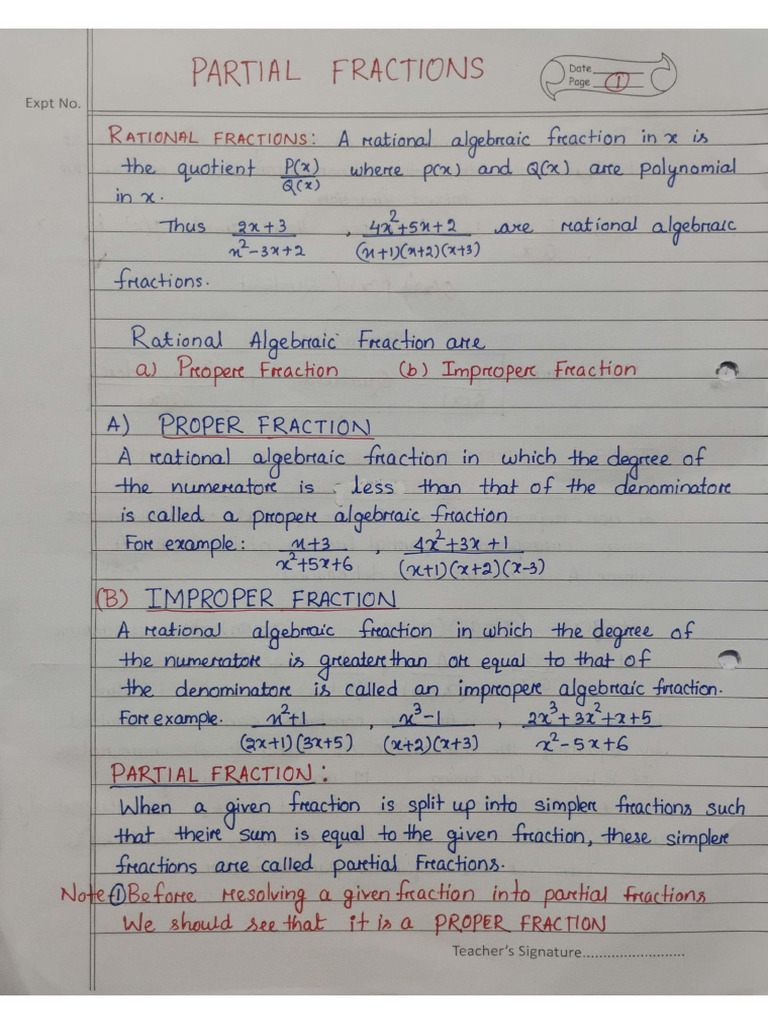 PARTIAL FRACTIONS
Date
Page 1
Expt No.
RATIONAL FRACTIONS: A rational algebraic fraction in x is
the quotient P(x)/Q(x) where p(x) and Q(x) are polynomial
in x.
Thus (2x+3)/(x²-3x+2) , (4x²+5x+2)/((x+1)(x+2)(x+3)) are rational algebraic
fractions.
Rational Algebraic Fraction are
a) Proper Fraction (b) Improper Fraction
A) PROPER FRACTION
A rational algebraic fraction in which the degree of
the numerator is less than that of the denominator
is called a proper algebraic fraction
For example: (x+3)/(x²+5x+6) , (4x²+3x+1)/((x+1)(x+2)(x-3))
(B) IMPROPER FRACTION
A rational algebraic fraction in which the degree of
the numerator is greater than or equal to that of
the denominator is called an improper algebraic fraction.
For example. (x²+1)/((2x+1)(3x+5)) , (x³-1)/((x+2)(x+3)) , (2x³+3x²+x+5)/(x²-5x+6)
PARTIAL FRACTION:
When a given fraction is split up into simpler fractions such
that their sum is equal to the given fraction, these simpler
fractions are called partial Fractions.
Note ① Before resolving a given fraction into partial fractions
We should see that it is a PROPER FRACTION
Teacher's Signature..........................